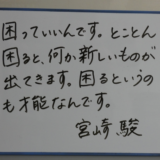 困っていいんです。とことん
困ると、何か新しいものが
出てきます。困るというの
も才能なんです。
宮崎 駿